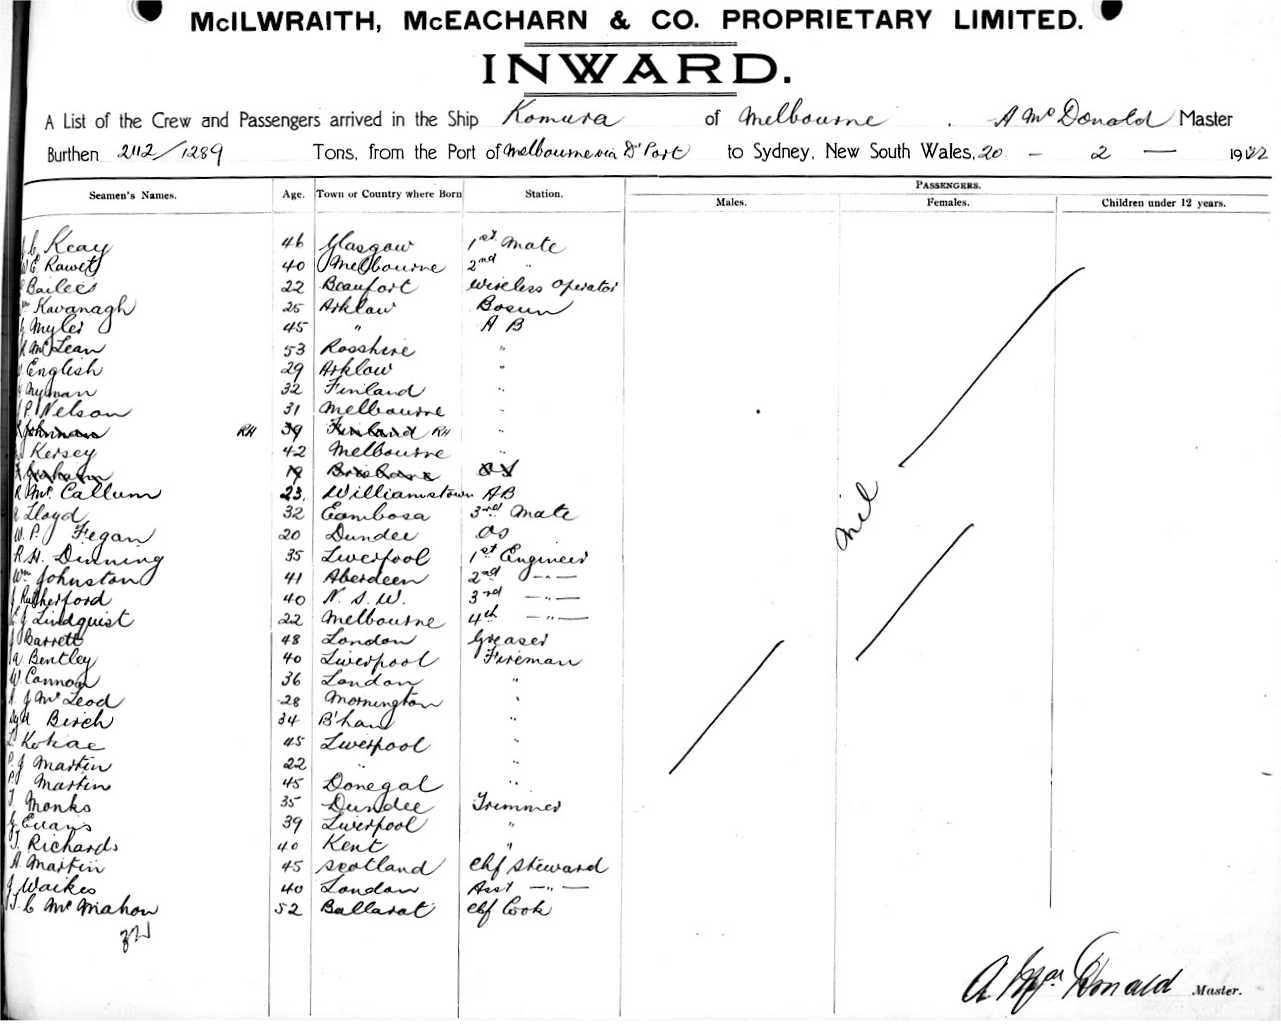 McILWRAITH, McEACHARN & CO. PROPRIETARY LIMITED.
INWARD.
A List of the Crew and Passengers arrived in the Ship Komura of Melbourne. A McDonald Master
Burthen 2112/1289 Tons, from the Port of Melbourne via D' Port to Sydney, New South Wales, 20 - 2 - 1922
Seamen's Names. Age. Town or Country where Born Station. PASSENGERS.
Males. Females. Children under 12 years.
Keay 46 Glasgow 1st Mate
W E Rawet 40 Melbourne 2nd "
Bailees 22 Beaufort Wireless Operator
Kavanagh 25 Arklow Bosun
Myler 45 " A B
McLean 53 Rosshire "
English 29 Arklow "
Nyman 32 Finland "
P. Nelson 31 Melbourne "
Johnson RH 39 Finland RH "
Kersey 42 Melbourne "
Graham 19 Brisbane OS
R McCallum 23. Williamstown AB
Lloyd 32 3rd Mate
W. P. Fegan 20 Dundee OS
R. H. Dinning 35 Liverpool 1st Engineer
Wm Johnston 41 Aberdeen 2nd -"-
J Rutherford 40 N. S. W. 3rd -"-
J Lindquist 22 Melbourne 4th -"-
J Barrett 48 London Greaser
A Bentley 40 Liverpool Fireman
W Cannon 36 London "
A. J McLeod 28 Mornington "
Birch 34 B'ham "
Kokae 45 Liverpool "
P. J Martin 22 " "
P. Martin 45 Donegal "
T Monks 35 Dundee Trimmer
J Evans 39 Liverpool "
T. Richards 40 Kent "
A. Martin 45 Scotland Chf Steward
J Waikes 40 London Asst -"-
T. C McMahon 52 Ballarat Chf Cook
nil
32
A MacDonald Master.